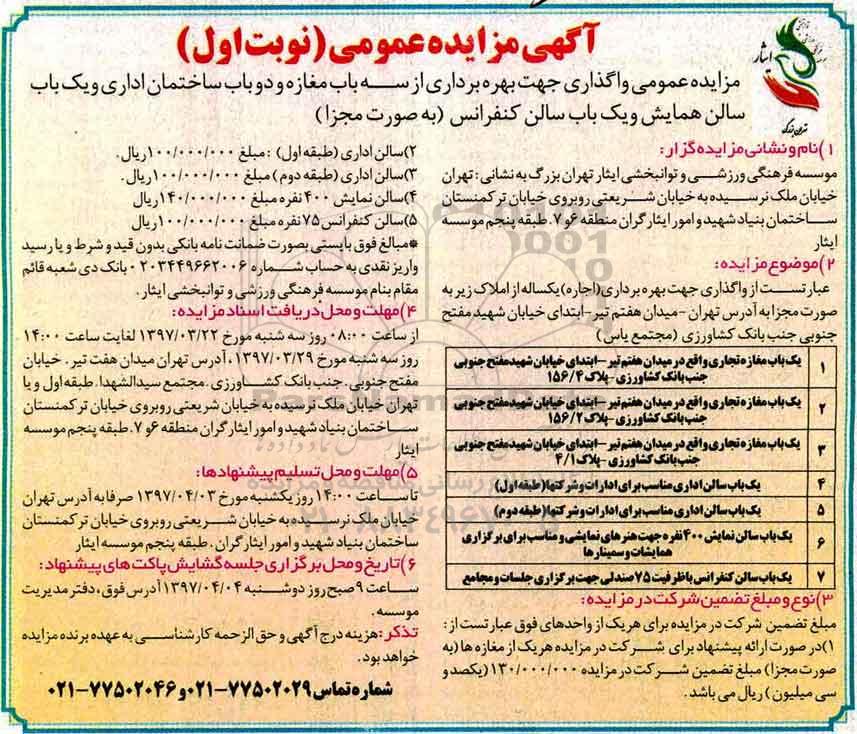 آگهی مزایده عمومی (نوبت اول)
مزایده عمومی واگذاری جهت بهره برداری از سه باب مغازه و دو باب ساختمان اداری و یک باب
سالن همایش و یک باب سالن کنفرانس (به صورت مجزا)
ایثار
تهران بزرگ
۱) نام و نشانی مزایده گزار:
موسسه فرهنگی ورزشی و توانبخشی ایثار تهران بزرگ به نشانی: تهران
خیابان ملک نرسیده به خیابان شریعتی روبروی خیابان ترکمنستان
ساختمان بنیاد شهید و امور ایثارگران منطقه ۶ و ۷. طبقه پنجم موسسه
ایثار
۲) موضوع مزایده:
عبارتست از واگذاری جهت بهره برداری (اجاره) یکساله از املاک زیر به
صورت مجزا به آدرس تهران - میدان هفتم تیر - ابتدای خیابان شهید مفتح
جنوبی جنب بانک کشاورزی (مجتمع یاس)
۱ یک باب مغازه تجاری واقع در میدان هفتم تیر - ابتدای خیابان شهید مفتح جنوبی
جنب بانک کشاورزی - پلاک ۱۵۶/۴
۲ یک باب مغازه تجاری واقع در میدان هفتم تیر - ابتدای خیابان شهید مفتح جنوبی
جنب بانک کشاورزی - پلاک ۱۵۶/۲
۳ یک باب مغازه تجاری واقع در میدان هفتم تیر - ابتدای خیابان شهید مفتح جنوبی
جنب بانک کشاورزی - پلاک ۴/۱
۴ یک باب سالن اداری مناسب برای ادارات و شرکتها (طبقه اول)
۵ یک باب سالن اداری مناسب برای ادارات و شرکتها (طبقه دوم)
۶ یک باب سالن نمایش ۴۰۰ نفره جهت هنرهای نمایشی و مناسب برای برگزاری
همایشات و سمینارها
۷ یک باب سالن کنفرانس با ظرفیت ۷۵ صندلی جهت برگزاری جلسات و مجامع
۳) نوع و مبلغ تضمین شرکت در مزایده:
مبلغ تضمین شرکت در مزایده برای هریک از واحدهای فوق عبارتست از:
۱) در صورت ارائه پیشنهاد برای شرکت در مزایده هریک از مغازه ها (به
صورت مجزا) مبلغ تضمین شرکت در مزایده ۱۳۰/۰۰۰/۰۰۰ (یکصد و
سی میلیون) ریال می باشد.
۲) سالن اداری (طبقه اول): مبلغ ۱۰۰/۰۰۰/۰۰۰ ریال.
۳) سالن اداری (طبقه دوم) مبلغ ۱۰۰/۰۰۰/۰۰۰ ریال.
۴) سالن نمایش ۴۰۰ نفره مبلغ ۱۴۰/۰۰۰/۰۰۰ ریال
۵) سالن کنفرانس ۷۵ نفره مبلغ ۱۰۰/۰۰۰/۰۰۰ ریال
*مبالغ فوق بایستی بصورت ضمانت نامه بانکی بدون قید و شرط و یا رسید
واریز نقدی به حساب شماره ۰۲۰۳۴۴۹۶۶۲۰۰۶ بانک دی شعبه قائم
مقام بنام موسسه فرهنگی ورزشی و توانبخشی ایثار.
۴) مهلت و محل دریافت اسناد مزایده:
از ساعت ۰۸:۰۰ روز سه شنبه مورخ ۱۳۹۷/۰۳/۲۲ لغایت ساعت ۱۴:۰۰
روز سه شنبه مورخ ۱۳۹۷/۰۳/۲۹، آدرس تهران میدان هفت تیر. خیابان
مفتح جنوبی. جنب بانک کشاورزی. مجتمع سیدالشهدا. طبقه اول و یا
تهران خیابان ملک نرسیده به خیابان شریعتی روبروی خیابان ترکمنستان
ساختمان بنیاد شهید و امور ایثارگران منطقه ۶ و ۷. طبقه پنجم موسسه
ایثار
۵) مهلت و محل تسلیم پیشنهادها:
تا ساعت ۱۴:۰۰ روز یکشنبه مورخ ۱۳۹۷/۰۴/۰۳ صرفا به آدرس تهران
خیابان ملک نرسیده به خیابان شریعتی روبروی خیابان ترکمنستان
ساختمان بنیاد شهید و امور ایثارگران. طبقه پنجم موسسه ایثار
۶) تاریخ و محل برگزاری جلسه گشایش پاکت های پیشنهاد:
ساعت ۹ صبح روز دوشنبه ۱۳۹۷/۰۴/۰۴ آدرس فوق، دفتر مدیریت
موسسه.
تذکر: هزینه درج آگهی و حق الزحمه کارشناسی به عهده برنده مزایده
خواهد بود.
شماره تماس ۷۷۵۰۲۰۲۹-۰۲۱ و ۷۷۵۰۲۰۴۶-۰۲۱